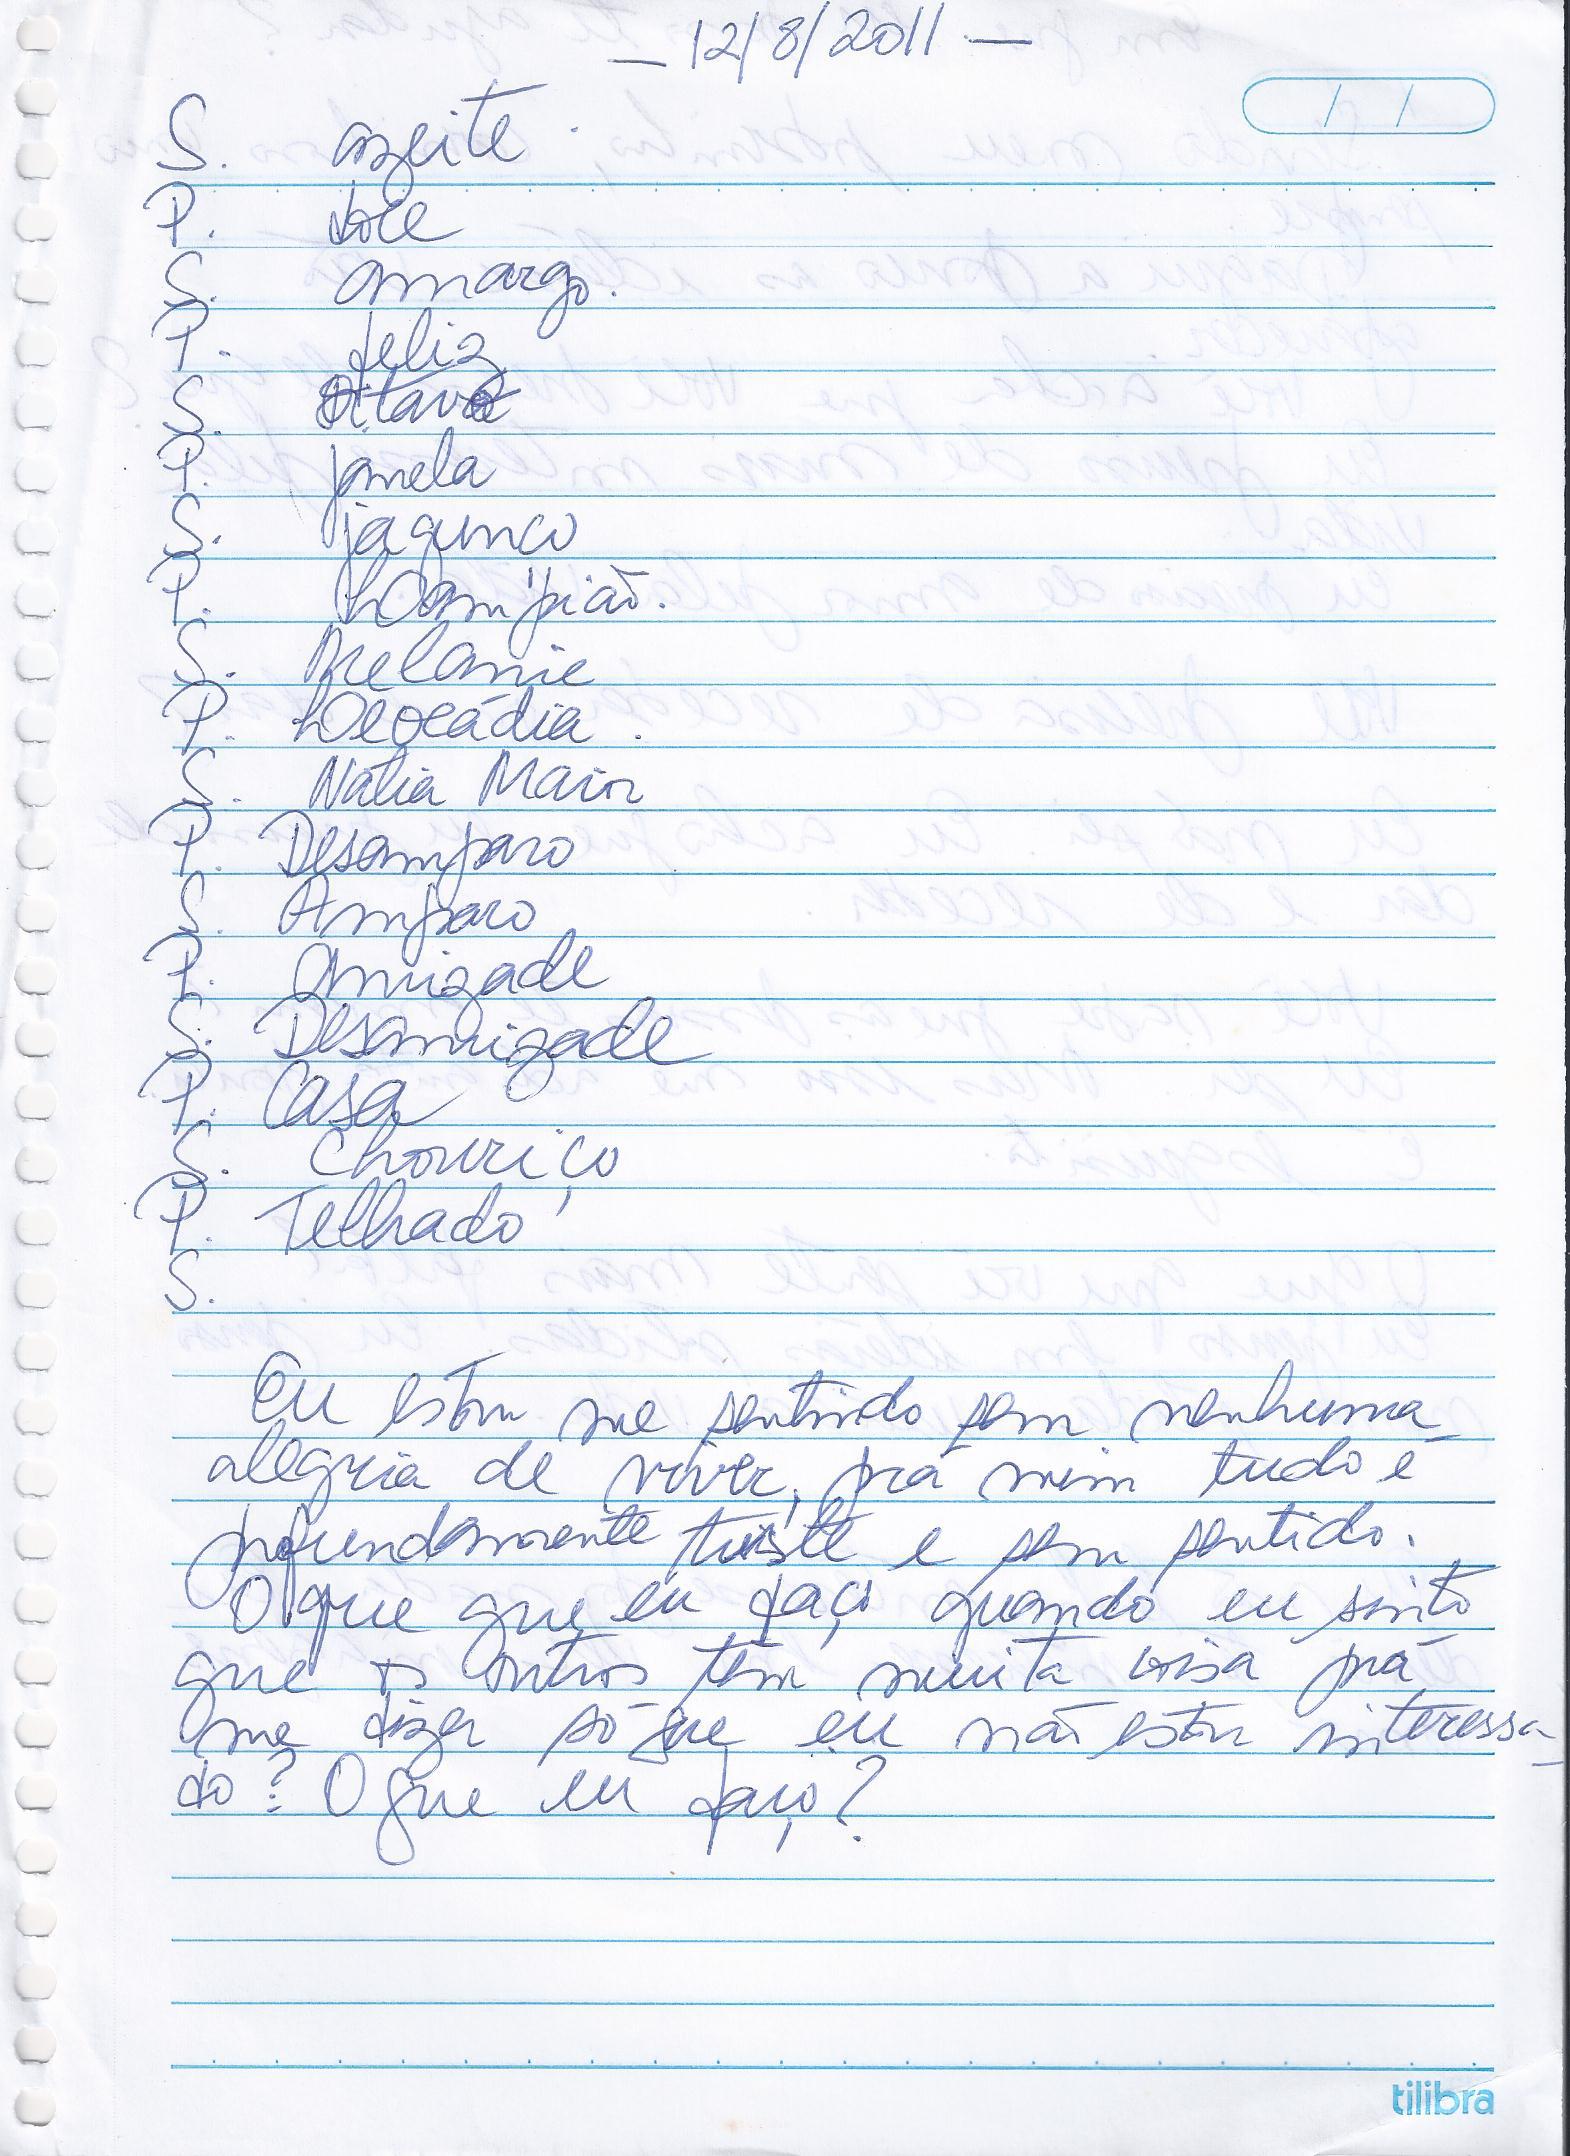 — 12/8/2011 —
S. azeite.
P. doce
S. amargo.
P. feliz
S. Otavo
P. janela
S. jagunço
P. Lampião.
S. Melanie
P. Leocádia.
S. Natia Maior
P. Desamparo
S. Amparo
P. amizade
S. Desamizade
P. Casa
S. Chouriço
P. Telhado
S.
Eu estou me sentindo sem nenhuma
alegria de viver, prá mim tudo é
profundamente triste e sem sentido.
O que que eu faço quando eu sinto
que os outros têm muita coisa prá
me dizer só que eu não estou interessa-
do? O que eu faço?
tilibra